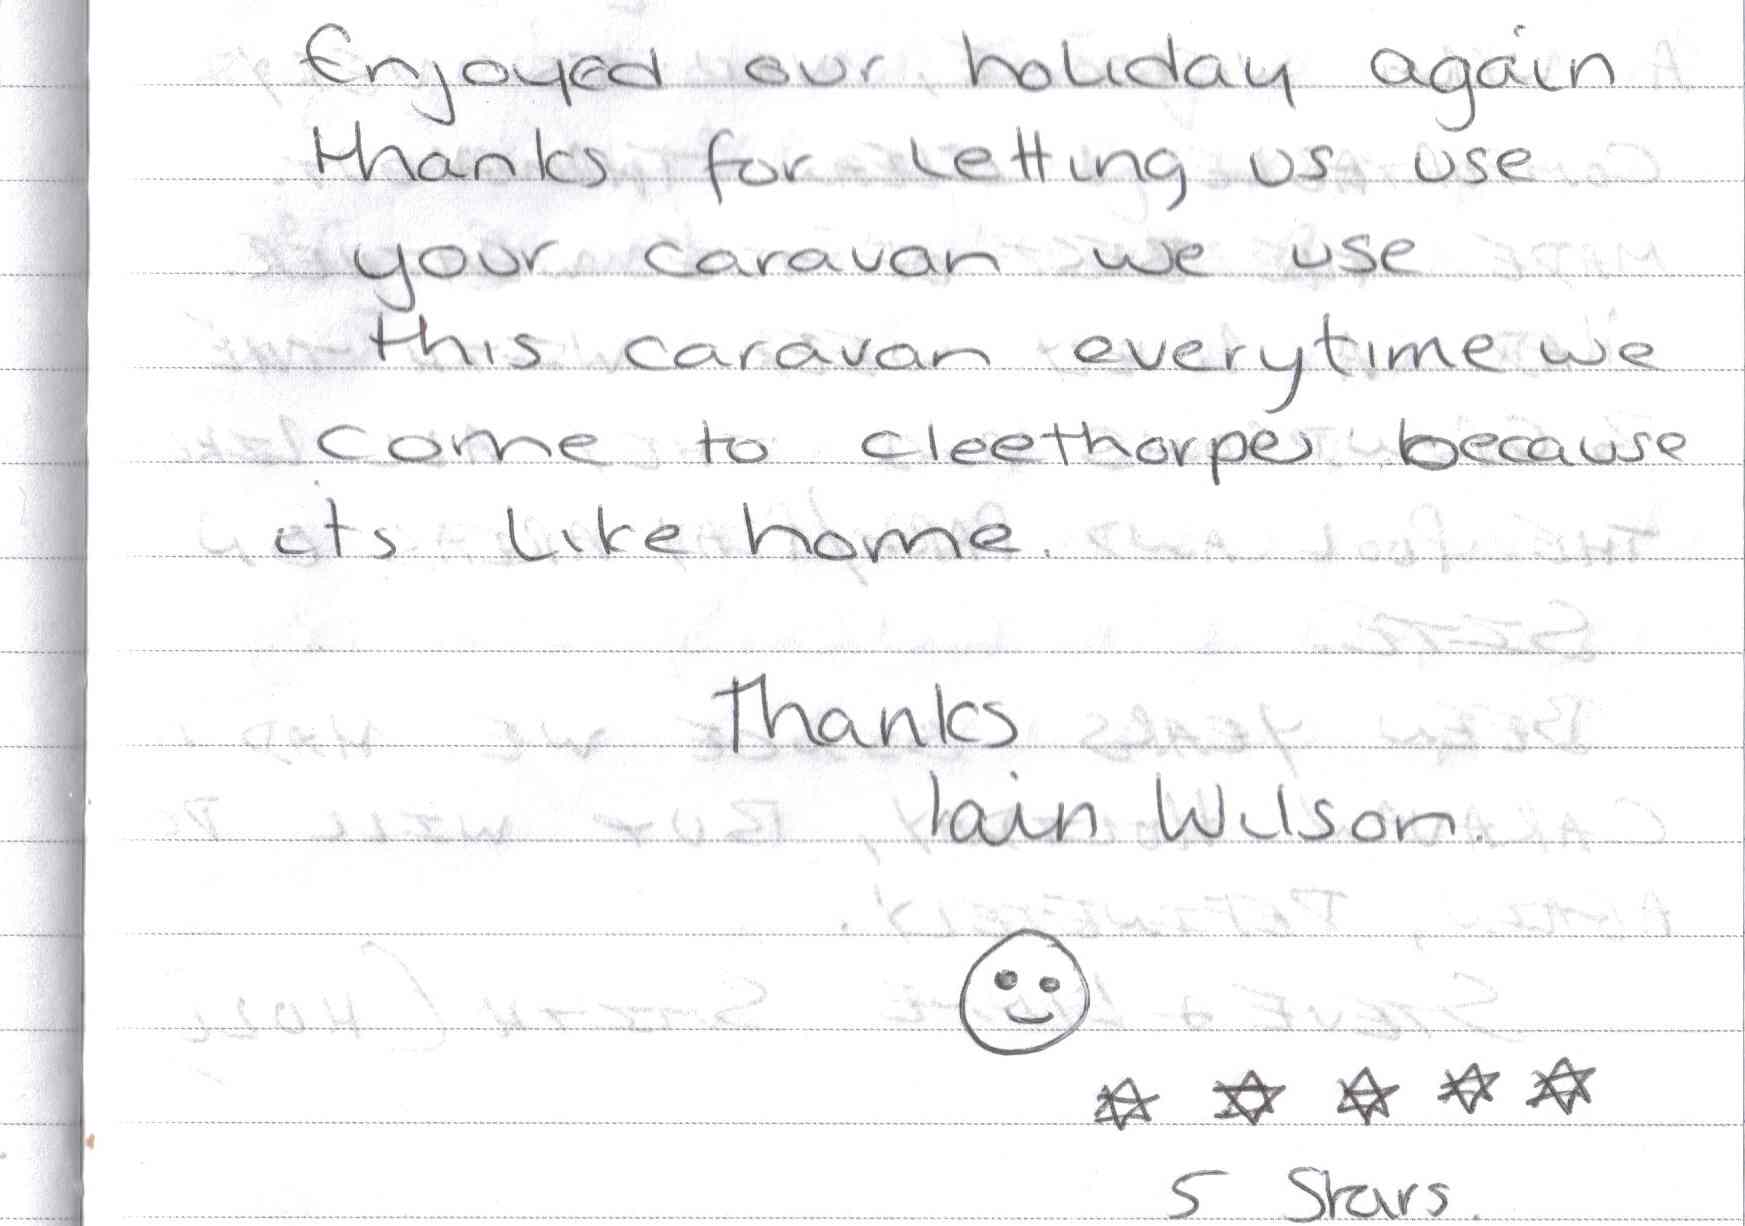 Enjoyed our holiday again
thanks for letting us use
your caravan we use
this caravan everytime we
come to cleethorpes because
its like home.
Thanks
Iain Wilson.
5 Stars.